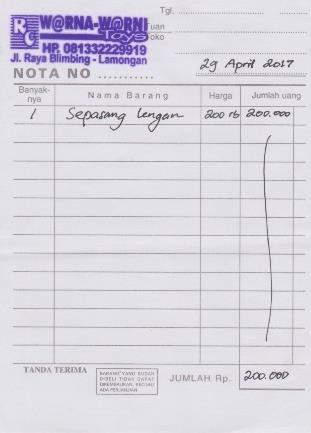 Tgl.
W@RNA-W@RNI
RC Toys
uan
oko
HP. 081332229919
Jl. Raya Blimbing - Lamongan
29 April 2017
NOTA NO
Banyak-nya Nama Barang Harga Jumlah uang
1 Sepasang lengan 200 rb 200.000
TANDA TERIMA
BARANG² YANG SUDAH
DIBELI TIDAK DAPAT
DIKEMBALIKAN, KECUALI
ADA PERJANJIAN
JUMLAH Rp. 200.000